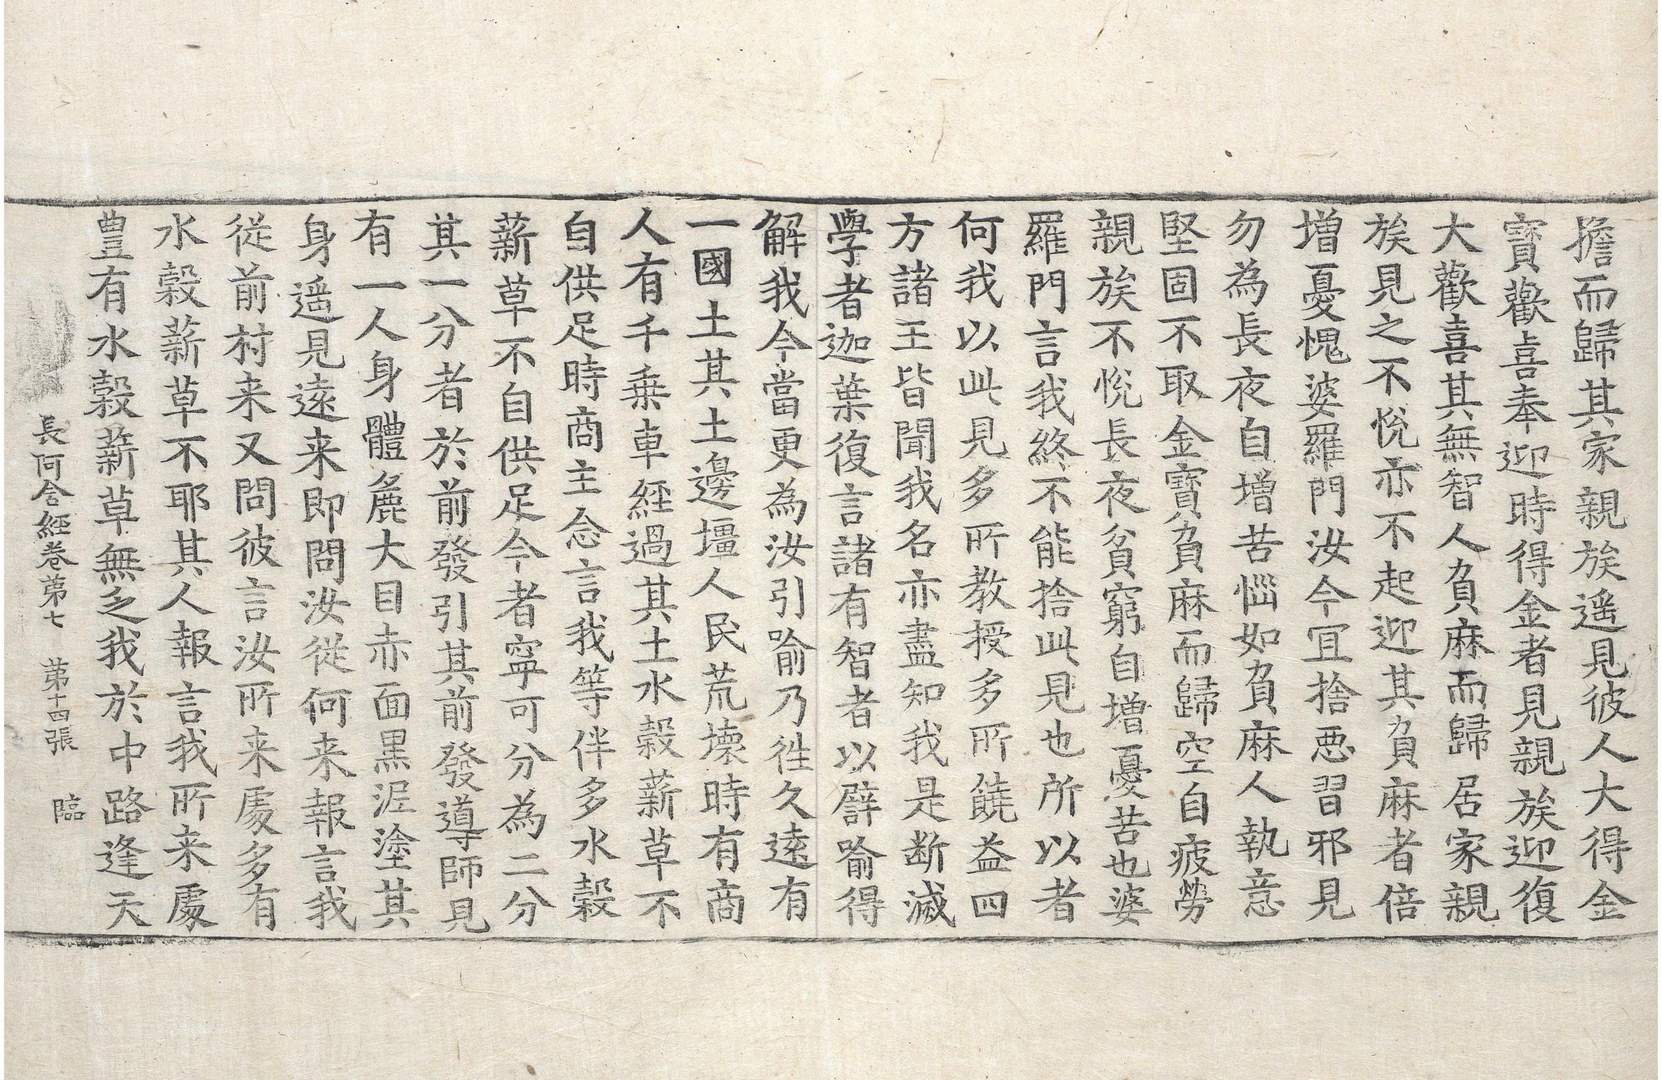 擔而歸其家親族遥見彼人大得金
寳歡喜奉迎時得金者見親族迎復
大歡喜其無智人負麻而歸居家親
族見之不悅亦不起迎其負麻者倍
増憂愧婆羅門汝今冝捨惡習邪見
勿為長夜自増苦惱如負麻人執意
堅固不取金寳負麻而歸空自疲勞
親族不悅長夜貧窮自増憂苦也婆
羅門言我終不能捨此見也所以者
何我以此見多所教授多所饒益四
方諸王皆聞我名亦盡知我是断滅
學者迦葉復言諸有智者以譬喻得
解我今當更為汝引喻乃徃久逺有
一國土其土邊壃人民荒壊時有商
人有千乗車經過其土水榖薪草不
自供足時商主念言我等伴多水榖
薪草不自供足今者寧可分為二分
其一分者於前發引其前發導師見
有一人身體麁大目赤面黒泥塗其
身遥見逺来即問汝從何来報言我
從前村来又問彼言汝所来處多有
水榖薪草不耶其人報言我所来處
豊有水榖薪草無乏我於中路逢天
長阿含經卷第七 第十四張 臨